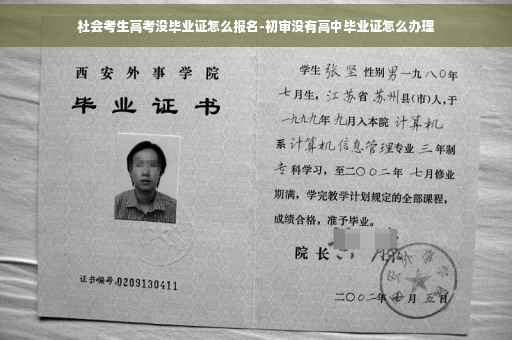 社会考生高考没毕业证怎么报名-初审没有高中毕业证怎么办理
西安外事学院
毕业证书
证书编号:0209130411
学生 张坚 性别 男 一九八〇年
七月生，江苏省 苏州县(市)人，于
一九九九年 九月入本院 计算机
系 计算机信息管理专业 三 年制
专科学习，至二〇〇二年 七月修业
期满，学完教学计划规定的全部课程，
成绩合格，准予毕业。
院长
二〇〇二年 月 五日